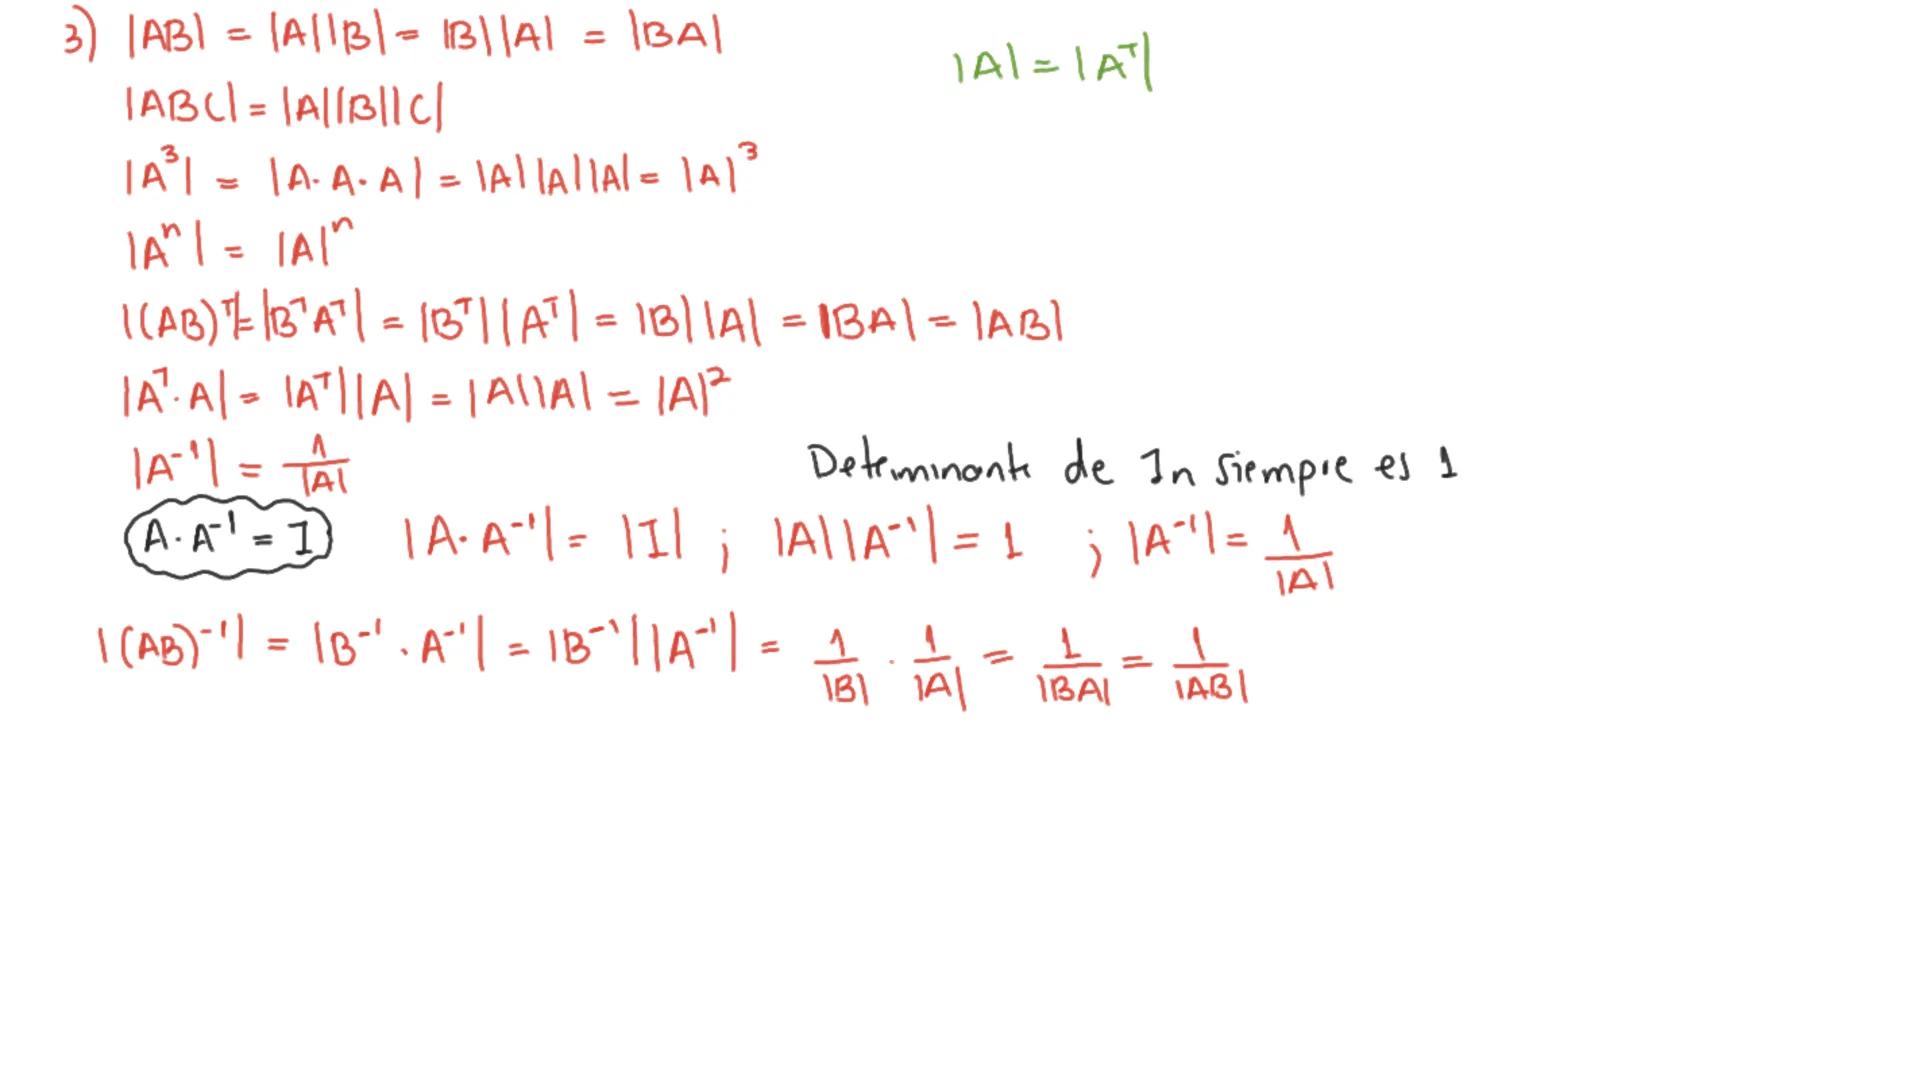 3) |AB| = |A||B| = |B||A| = |BA|
|A| = |Aᵀ|
|ABC| = |A||B||C|
|A³| = |A·A·A| = |A||A||A| = |A|³
|Aⁿ| = |A|ⁿ
|(AB)ᵀ| = |BᵀAᵀ| = |Bᵀ||Aᵀ| = |B||A| = |BA| = |AB|
|Aᵀ·A| = |Aᵀ||A| = |A||A| = |A|²
|A⁻¹| = 1/|A|
Determinante de In siempre es 1
A·A⁻¹ = I |A·A⁻¹| = |I| ; |A||A⁻¹| = 1 ; |A⁻¹| = 1/|A|
|(AB)⁻¹| = |B⁻¹·A⁻¹| = |B⁻¹||A⁻¹| = 1/|B| · 1/|A| = 1/|BA| = 1/|AB|